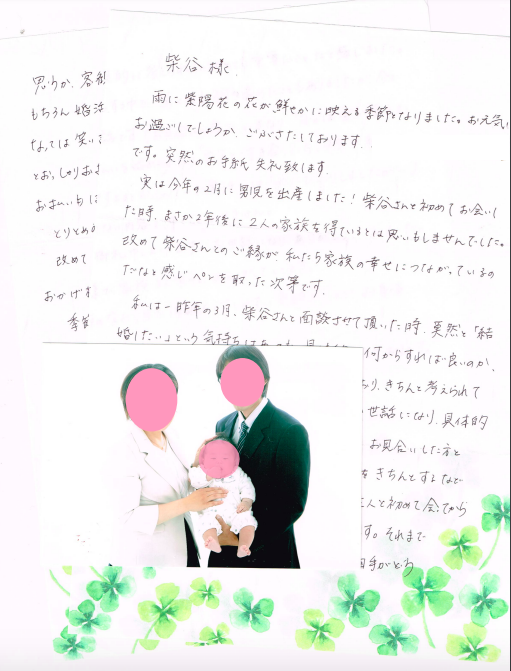 柴谷様
雨に紫陽花の花が鮮やかに映える季節となりました。お元気
お過ごしでしょうか、ごぶさたしております
です。突然のお手紙失礼致します。
実は今年の2月に男児を出産しました！柴谷さんと初めてお会いし
た時、まさか2年後に2人の家族を得ているとは思いもしませんでした。
改めて柴谷さんとのご縁が、私たち家族の幸せにつながっているの
だなと感じペンを取った次第です。
私は一昨年の3月、柴谷さんと面談させて頂いた時、漠然と「結
婚したい」という気持ちはあっ
何からすれば良いのか、
あり、きちんと考えられて
世話になり、具体的
お見合いした方と
をきちんとするなど
人と初めて会ってから
す。それまで
相手がどう
思うか、客観
もちろん婚活
なっては笑い
とおっしゃりおき
お支払い
とりとめ
改めて
おかげま
季節